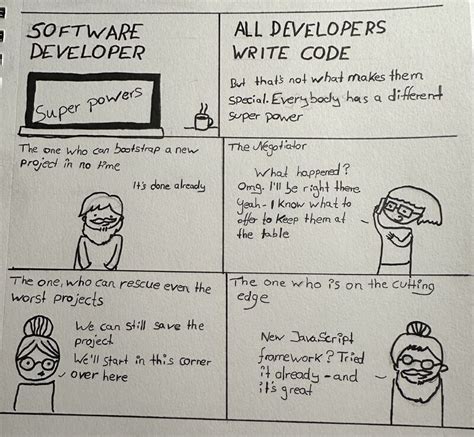 SOFTWARE
DEVELOPER
Super powers
ALL DEVELOPERS
WRITE CODE
But that's not what makes them
special. Everybody has a different
super power
The one who can bootstrap a new
project in no time
It's done already
The Negotiator
What happened?
Omg. I'll be right there
Yeah - I know what to
offer to keep them at
the table
The one, who can rescue even the
worst projects
We can still save the
project
We'll start in this corner
over here
The one who is on the cutting
edge
New JavaScript
framework? Tried
it already - and
it's great